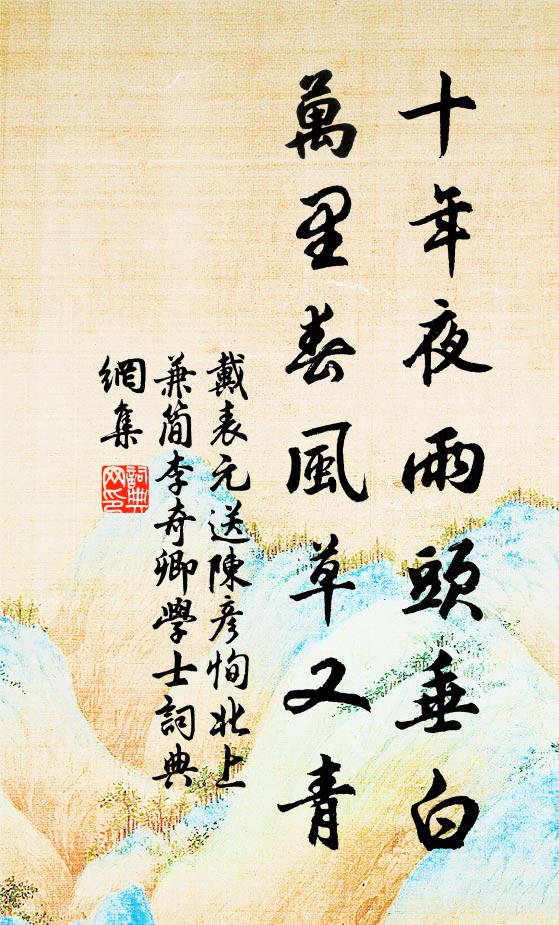 十年夜雨頭垂白
萬里春風草又青
戴表元送陳彥恂北上
兼簡李奇卿學士詞典
網集
詞典
网印